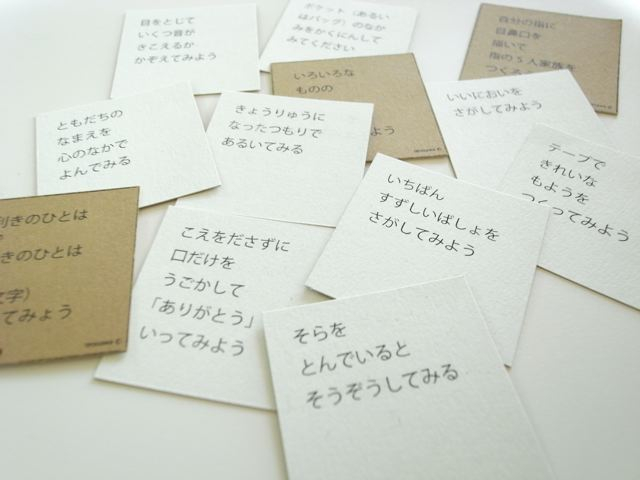 目をとじて
いくつ音が
きこえるか
かぞえてみよう
ポケット（あるい
はバッグ）のなか
みをかくにんして
みてください
自分の指に
目鼻口を
描いて
指の5人家族を
つくる
いろいろな
ものの
よう
いいにおいを
さがしてみよう
ともだちの
なまえを
心のなかで
よんでみる
きょうりゅうに
なったつもりで
あるいてみる
テープで
きれいな
もようを
つくってみよう
いちばん
すずしいばしょを
さがしてみよう
利きのひとは
きのひとは
文字）
てみよう
こえをださずに
口だけを
うごかして
「ありがとう」
いってみよう
そらを
とんでいると
そうぞうしてみる